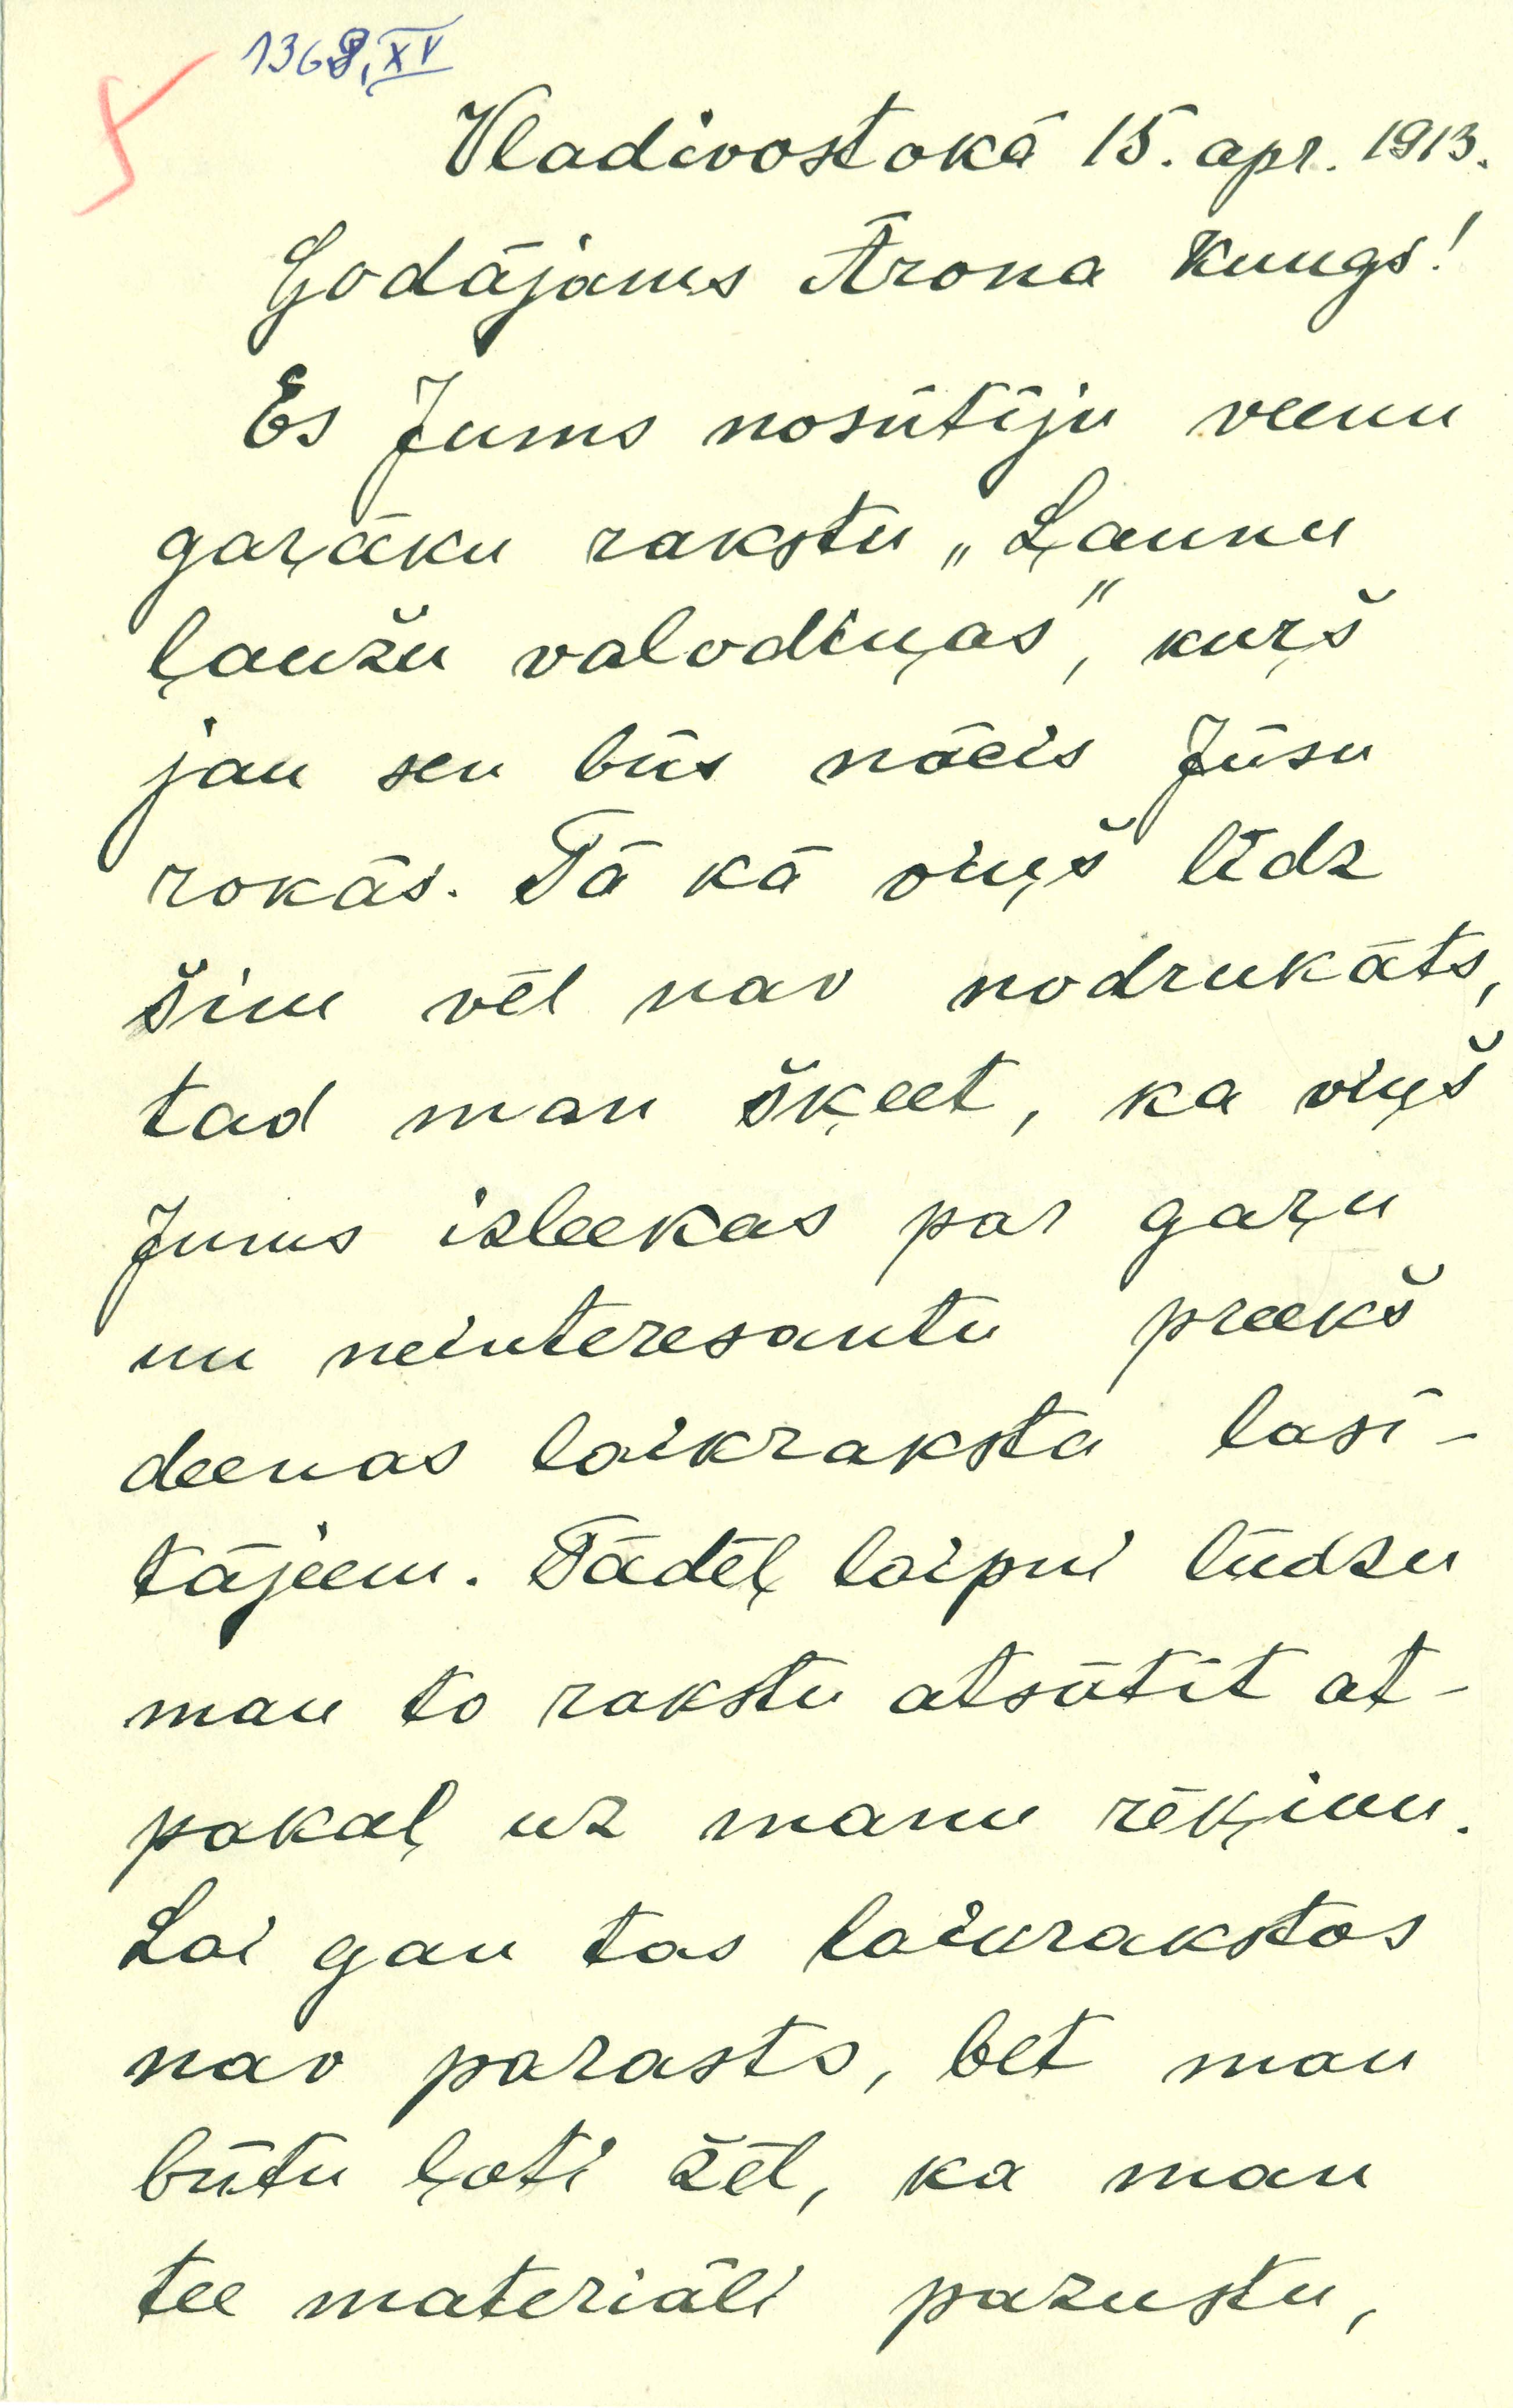 1368, XV
Vladivostokā 15. apr. 1913.
Godājams Ārona Kungs!
Es Jums nosūtīju veenu
gaŗāku rakstu „Launu
ļaužu valodiņas", kuŗš
jau sen būs nācis Jūsu
rokās. Tā kā viņš līdz
šim vēl nav nodrukāts,
tad man šķeet, ka viņš
Jums izleekas par gaŗu
un neinteresantu preekš
deenas laikraksta lasī-
tājeem. Tādēļ laipni lūdzu
man to rakstu atsūtīt at-
pakaļ uz manu rēķinu.
Lai gan tas laikrakstos
nav parasts, bet man
būtu ļoti žēl, ka man
tee materiāli pazustu,